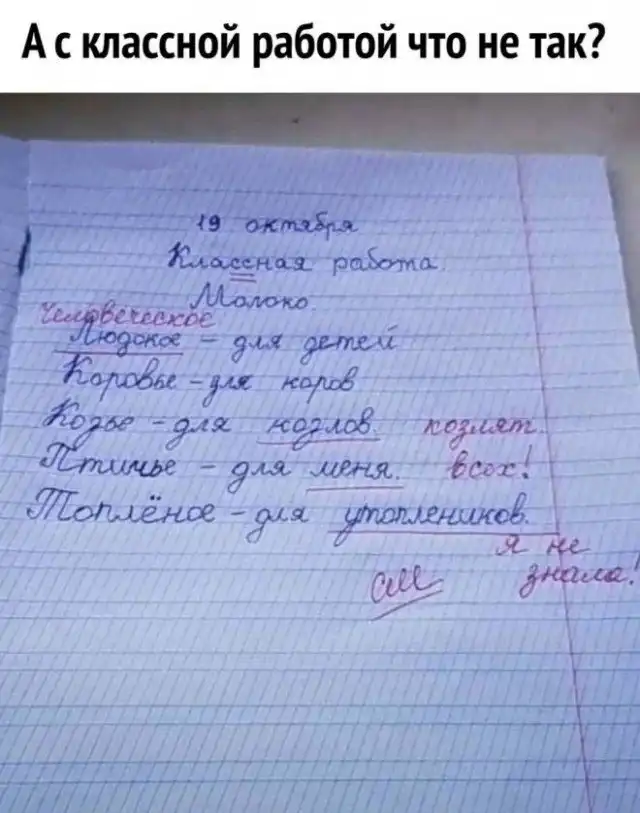 А с классной работой что не так?
19 октября
Классная работа.
Молоко.
Человеческое
Людское – для детей
Коровье – для коров
Козье – для козлов. козлят.
Птичье – для меня. всех!
Топлёное – для утоплеников.
я не
знала!
см